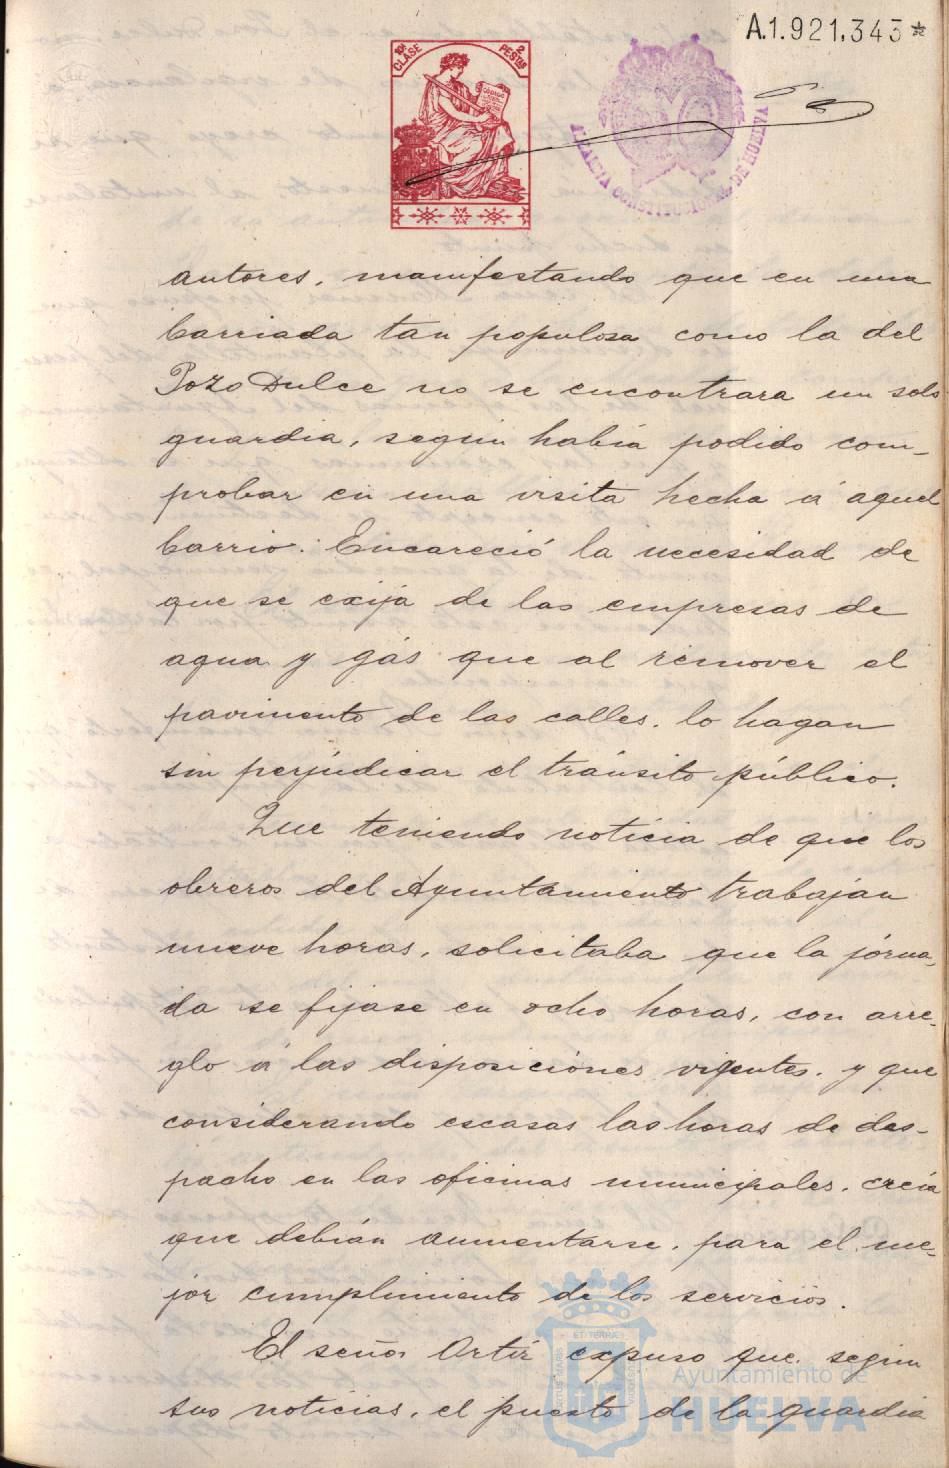 A.1.921,343*
10ª CLASE
2 PESTAS
ALCALDIA CONSTITUCIONAL DE HUELVA
autores, manifestando que en una
barriada tan populosa como la del
Pozo Dulce no se encontrara un solo
guardia, según había podido com-
probar en una visita hecha á aquel
barrio. Encareció la necesidad de
que se exija de las empresas de
agua y gás que al remover el
pavimento de las calles, lo hagan
sin perjudicar el tránsito público.
Que teniendo noticia de que los
obreros del Ayuntamiento trabajan
nueve horas, solicitaba que la jorna-
da se fijase en ocho horas, con arre-
glo á las disposiciones vigentes, y que
considerando escasas las horas de des-
pacho en las oficinas municipales, creía
que debían aumentarse, para el me-
jor cumplimiento de los servicios.
El señor Ortíz expuso que, según
sus noticias, el puesto de la guardia
Ayuntamiento de
HUELVA